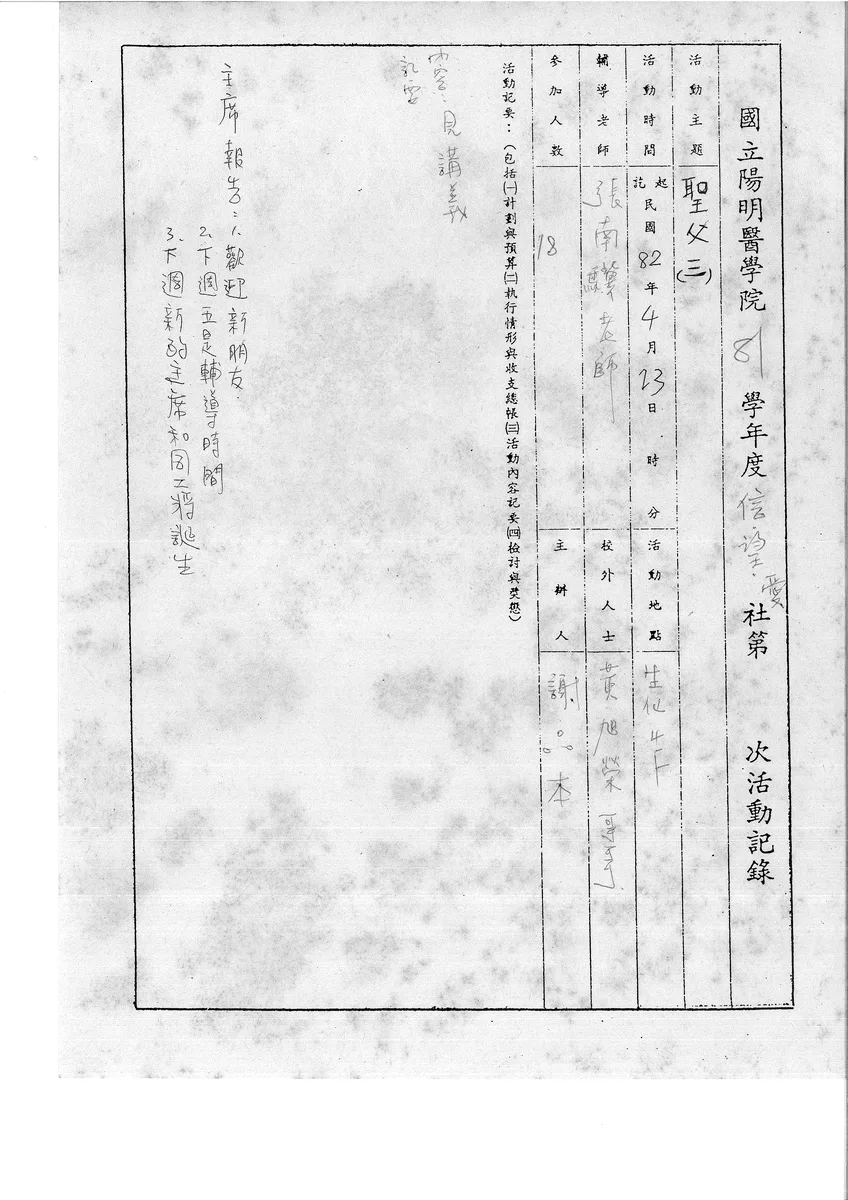 國立陽明醫學院 81 學年度 信望愛 社第 次活動記錄
活動主題 聖父(三)
活動時間 起訖民國 82 年 4 月 23 日 時 分 活動地點
輔導老師 張南驥老師 校外人士 黃旭榮
參加人數 18 主辦人 謝品本
活動記要：（包括㈠計劃與預算㈡執行情形與收支總帳㈢活動內容記要㈣檢討與獎懲）
內容：見講義
主席報告：1、歡迎新朋友.
2、下週五是輔導時間
3、下週新的主席和同工將誕生